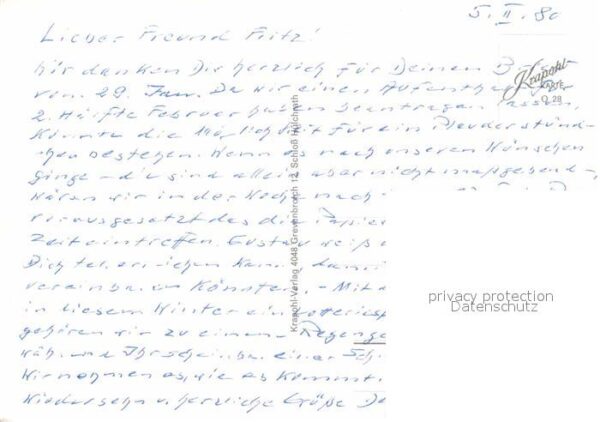 5. II. 80
Lieber Freund Fritz!
Wir danken Dir herzlich für Deinen
vom 29. Jan. Da wir einen
2. Hälfte Februar haben beantragen lassen,
könnte die Möglichkeit für ein Plauderstünd-
chen bestehen. Wenn es nach unseren Wünschen
ginge - die sind allein aber nicht maßgebend -,
wären wir in der
vorausgesetzt das die Papiere
Zeit eintreffen. Gustav weiß
Dich tel. erreichen kann, damit
vereinbaren könnten. - Mit
in diesem Winter ein Lotteriespiel
gehören wir zu einem Regenge
während Ihr scheinbar einer Sch
Wir nehmen es, wie es kommt.
Wiedersehn u. herzliche Grüße
Krapohl-
Karte
Q 28
Krapohl-Verlag 4048 Grevenbroich 12, Schloß Hülchrath
privacy protection
Datenschutz